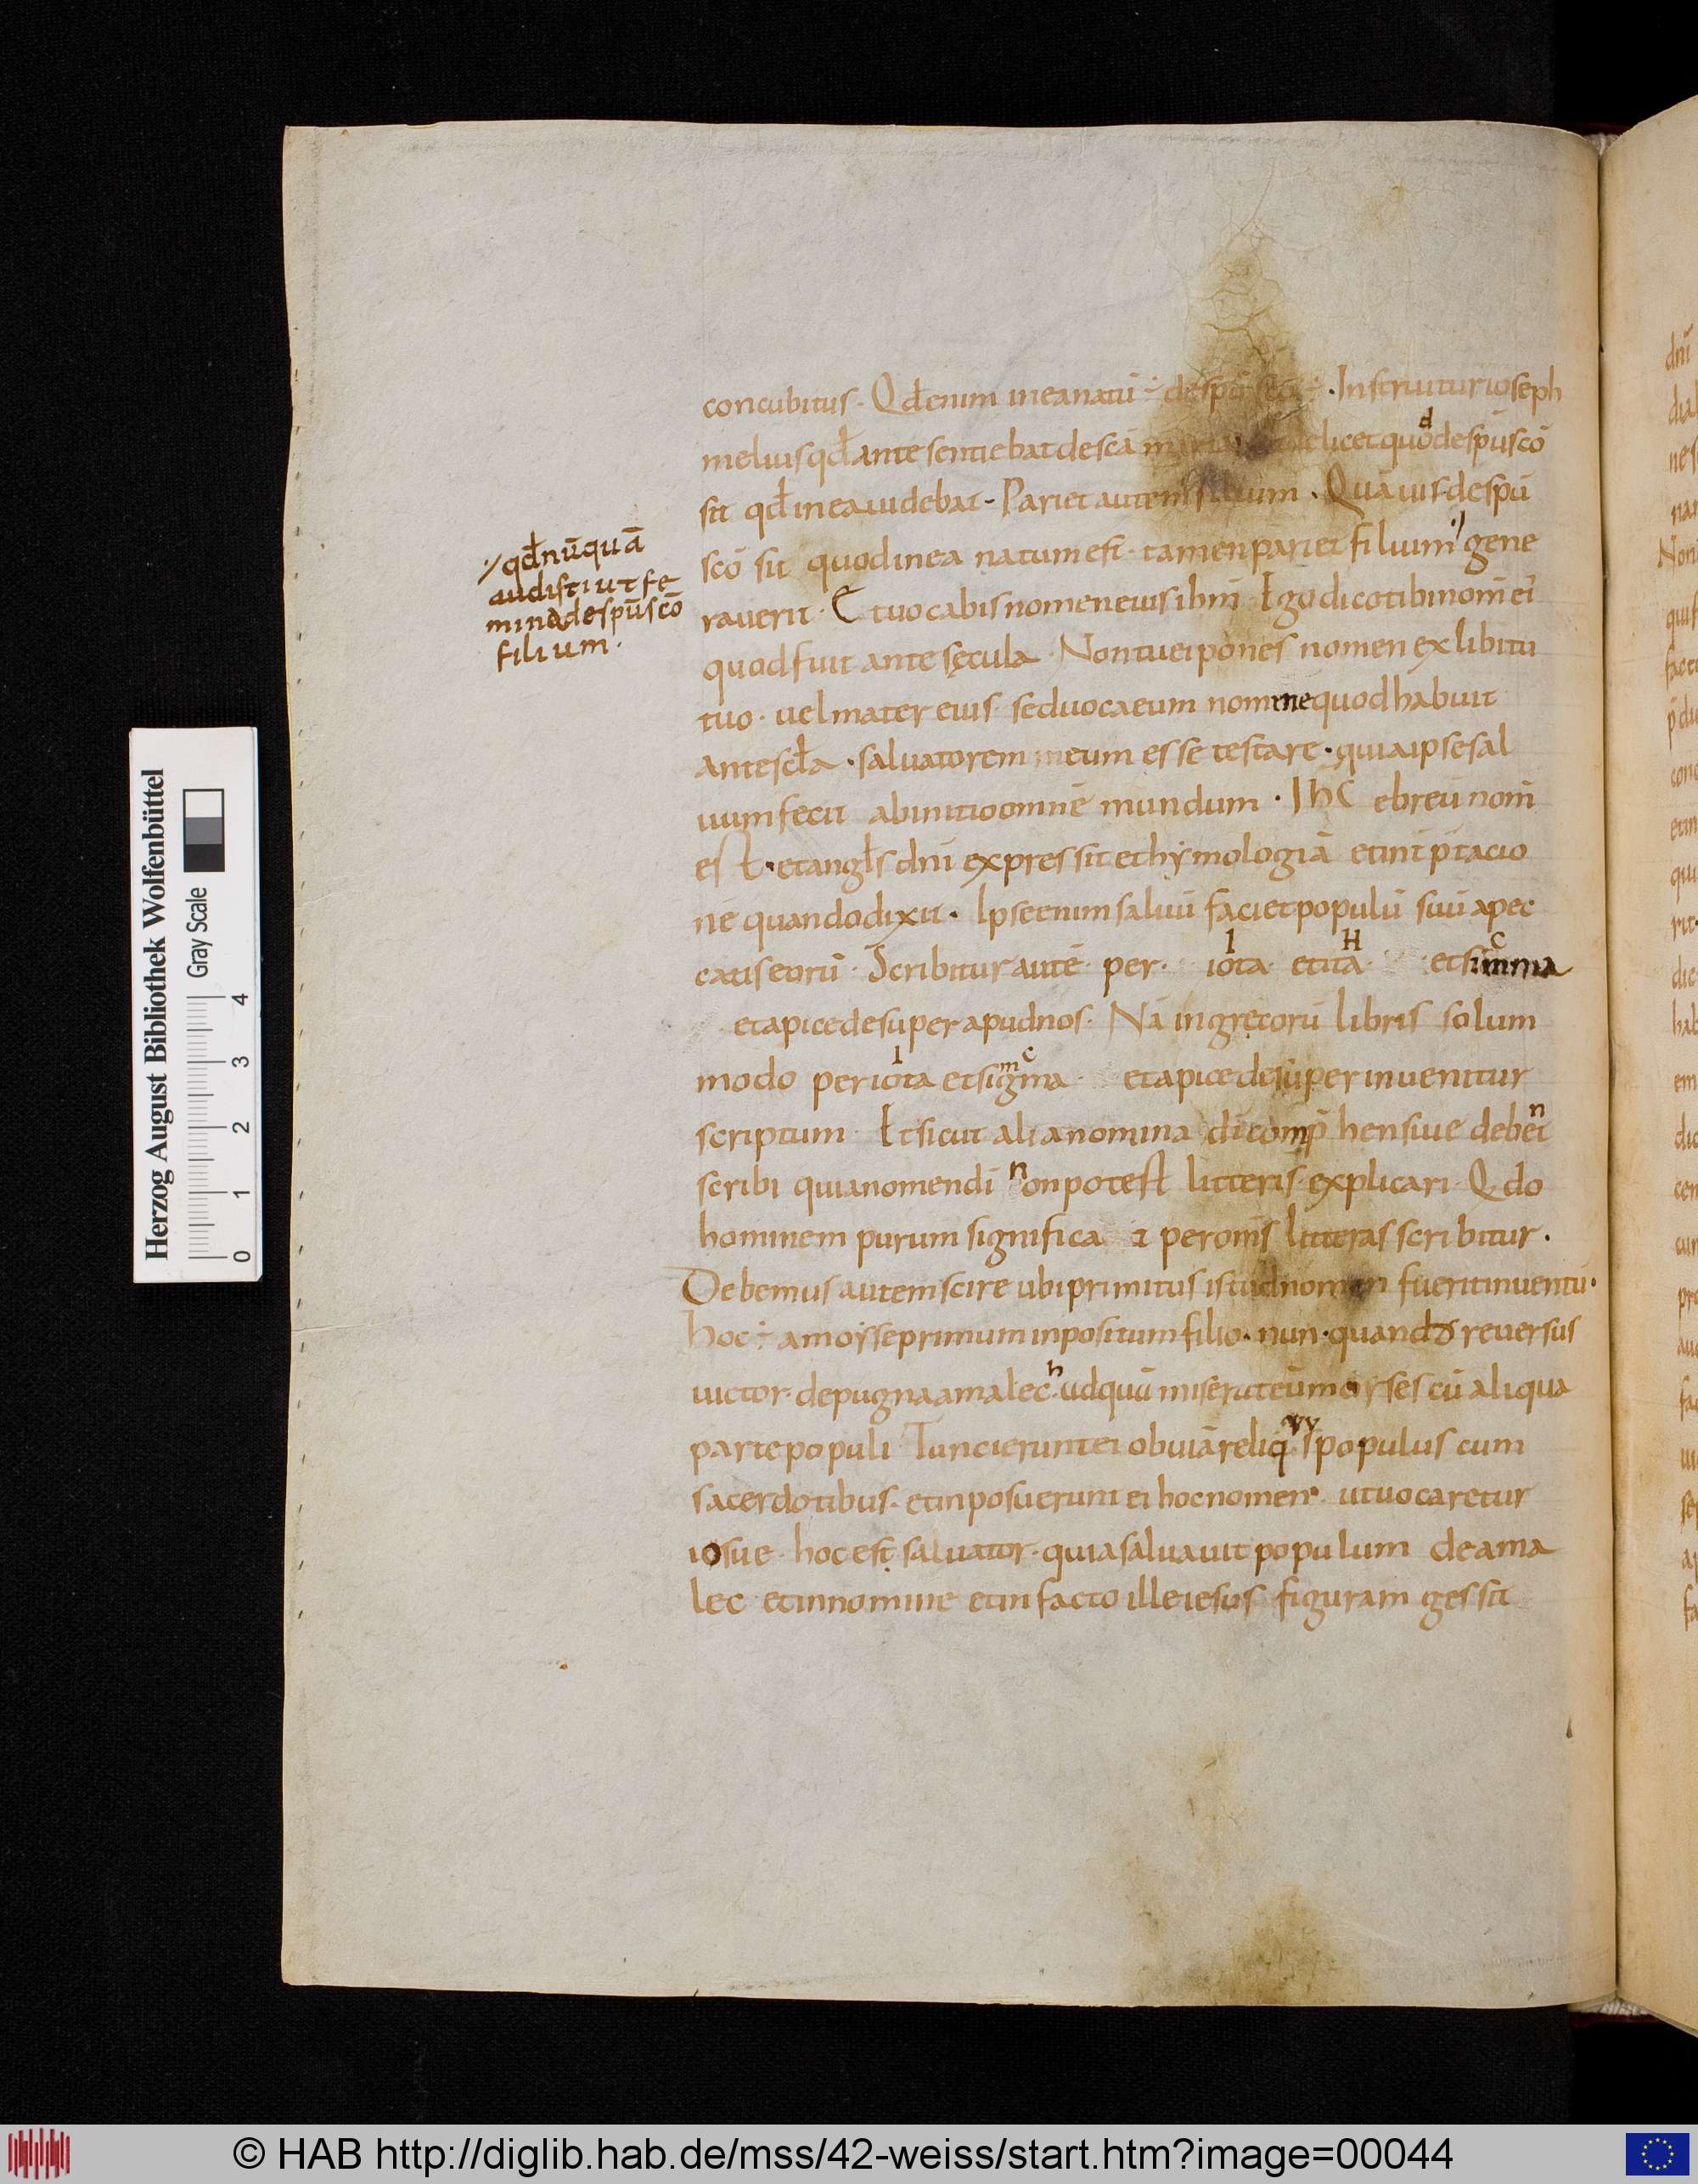 concubitus · Qđ enim in ea natū ÷ de spū sco ÷ · Instruitur ioseph
melius qđ ante sentiebat de scā maria licet quod de spū scō
sit qđ in ea uidebat · Pariet autem filium · Quāuis de spū
scō sit quod in ea natum est · tamen pariet filium ·/ gene
·/ qđ nūquā
audisti ut fe
mina de spū scō
filium ·
rauerit · Et uocabis nomen eius ihm̄ · Ego dico tibi nom̄ ei
quod fuit ante sęcula · Non tu ei pones nomen ex libitu
tuo · uel mater eius · sed uoca eum nomine quod habuit
ante scła · saluatorem meum esse testare · quia ipse sal
uum fecit ab initio omnē mundum · IhC ebreū nom̄
est · et angłs dn̄i expressit ethẏmologiā et int̄p̄tacio
nē quando dixit · Ipse enim saluū faciet populū suū a pec
catis eorū · Scribitur autē per · iota I · et ita H · et simma C
et apice desuper apud nos · Nā in gręcorū libris solum
modo per iota I et sigmma C · et apice desuper inuenitur
scriptum · Et sicut alia nomina dī comp̄hensiue debent
scribi quia nomen dī non potest litteris explicari · Qdo
hominem purum significat per om̄s litteras scribitur ·
Debemus autem scire ubi primitus istud nomen fuerit inuentū ·
hoc ÷ a moẏse primum inpositum filio · nun · quando reuersus
uictor · de pugna amalech · ad quā miserat eū moẏses cū aliqua
parte populi · Tunc ierunt ei obuiā reliquus populus cum
sacerdotibus · et inposuerunt ei hoc nomen · ut uocaretur
iosue · hoc est saluator · quia saluauit populum de ama
lec · et in nomine et in facto ille iesus figuram gessit
Herzog August Bibliothek Wolfenbüttel
Gray Scale
0 1 2 3 4
© HAB http://diglib.hab.de/mss/42-weiss/start.htm?image=00044